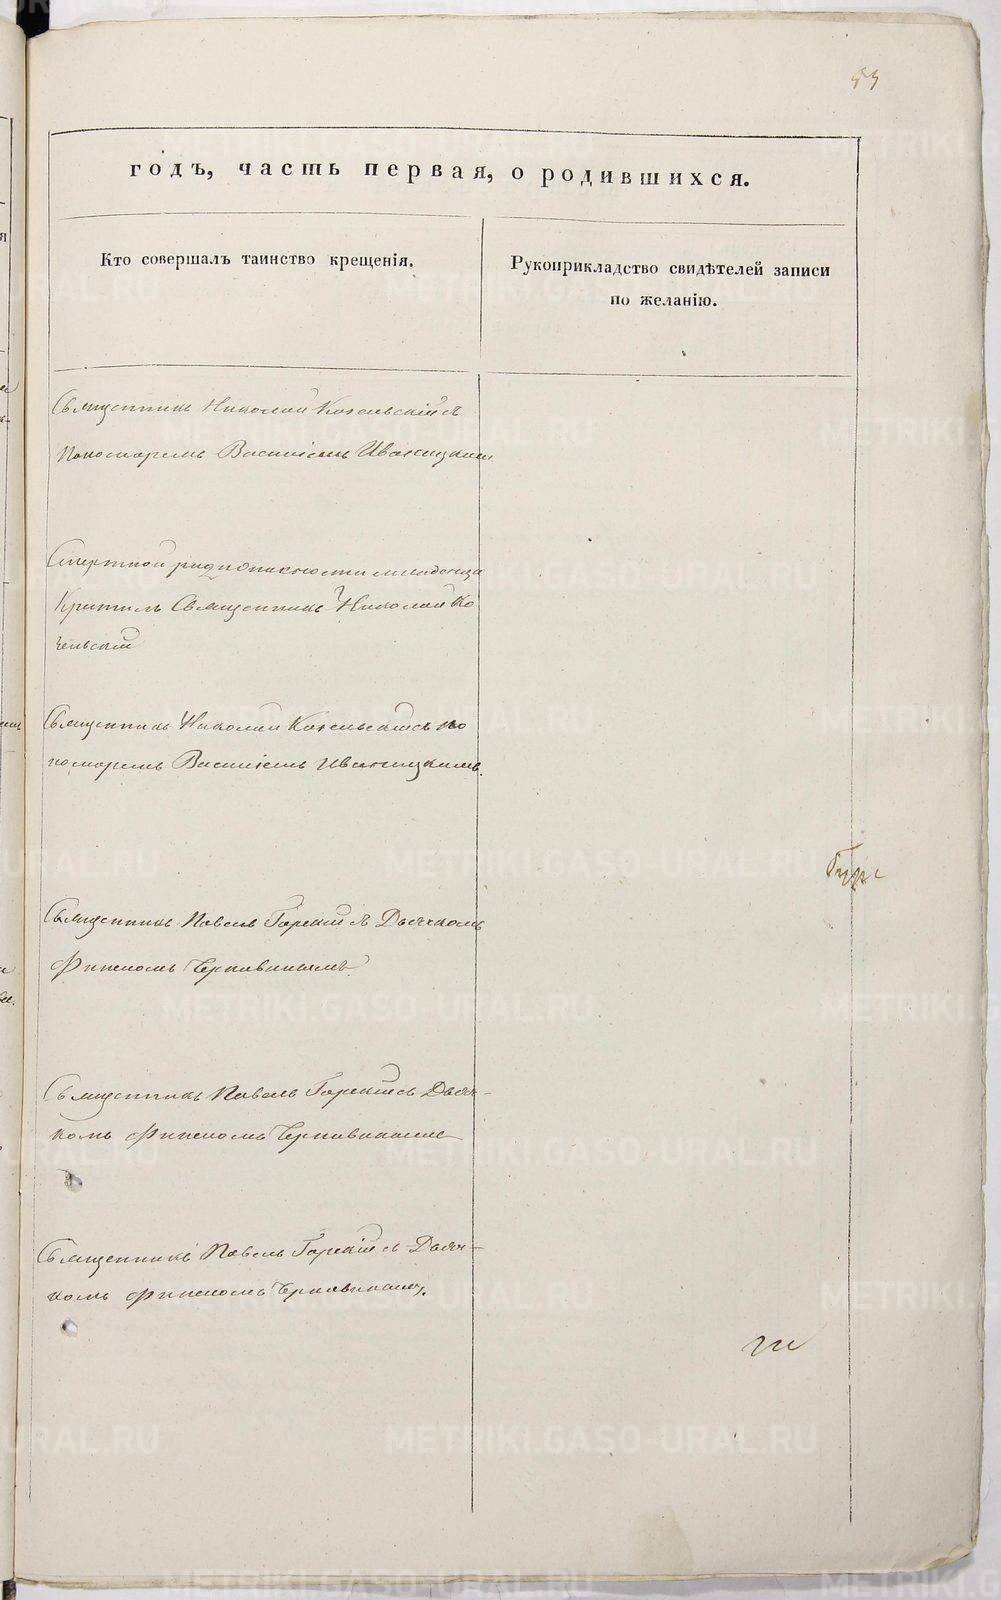 53
годъ, часть первая, о родившихся.
Кто совершалъ таинство крещенія.
Рукоприкладство свидѣтелей записи
по желанію.
Священникъ Николай Кочельскій съ
пономаремъ Василіемъ Иваницкимъ
Смертной младенца
Крестилъ Священникъ Николай Ко
чельскій
Священникъ Николай Кочельскій съ по
номаремъ Василіемъ Иваницкимъ.
Священникъ Павелъ Горскій съ Дьячкомъ
Финеномъ
Священникъ Павелъ Горскій съ Дьяч-
комъ
Священникъ Павелъ Горскій съ Дьяч-
комъ
METRIKI.GASO-URAL.RU